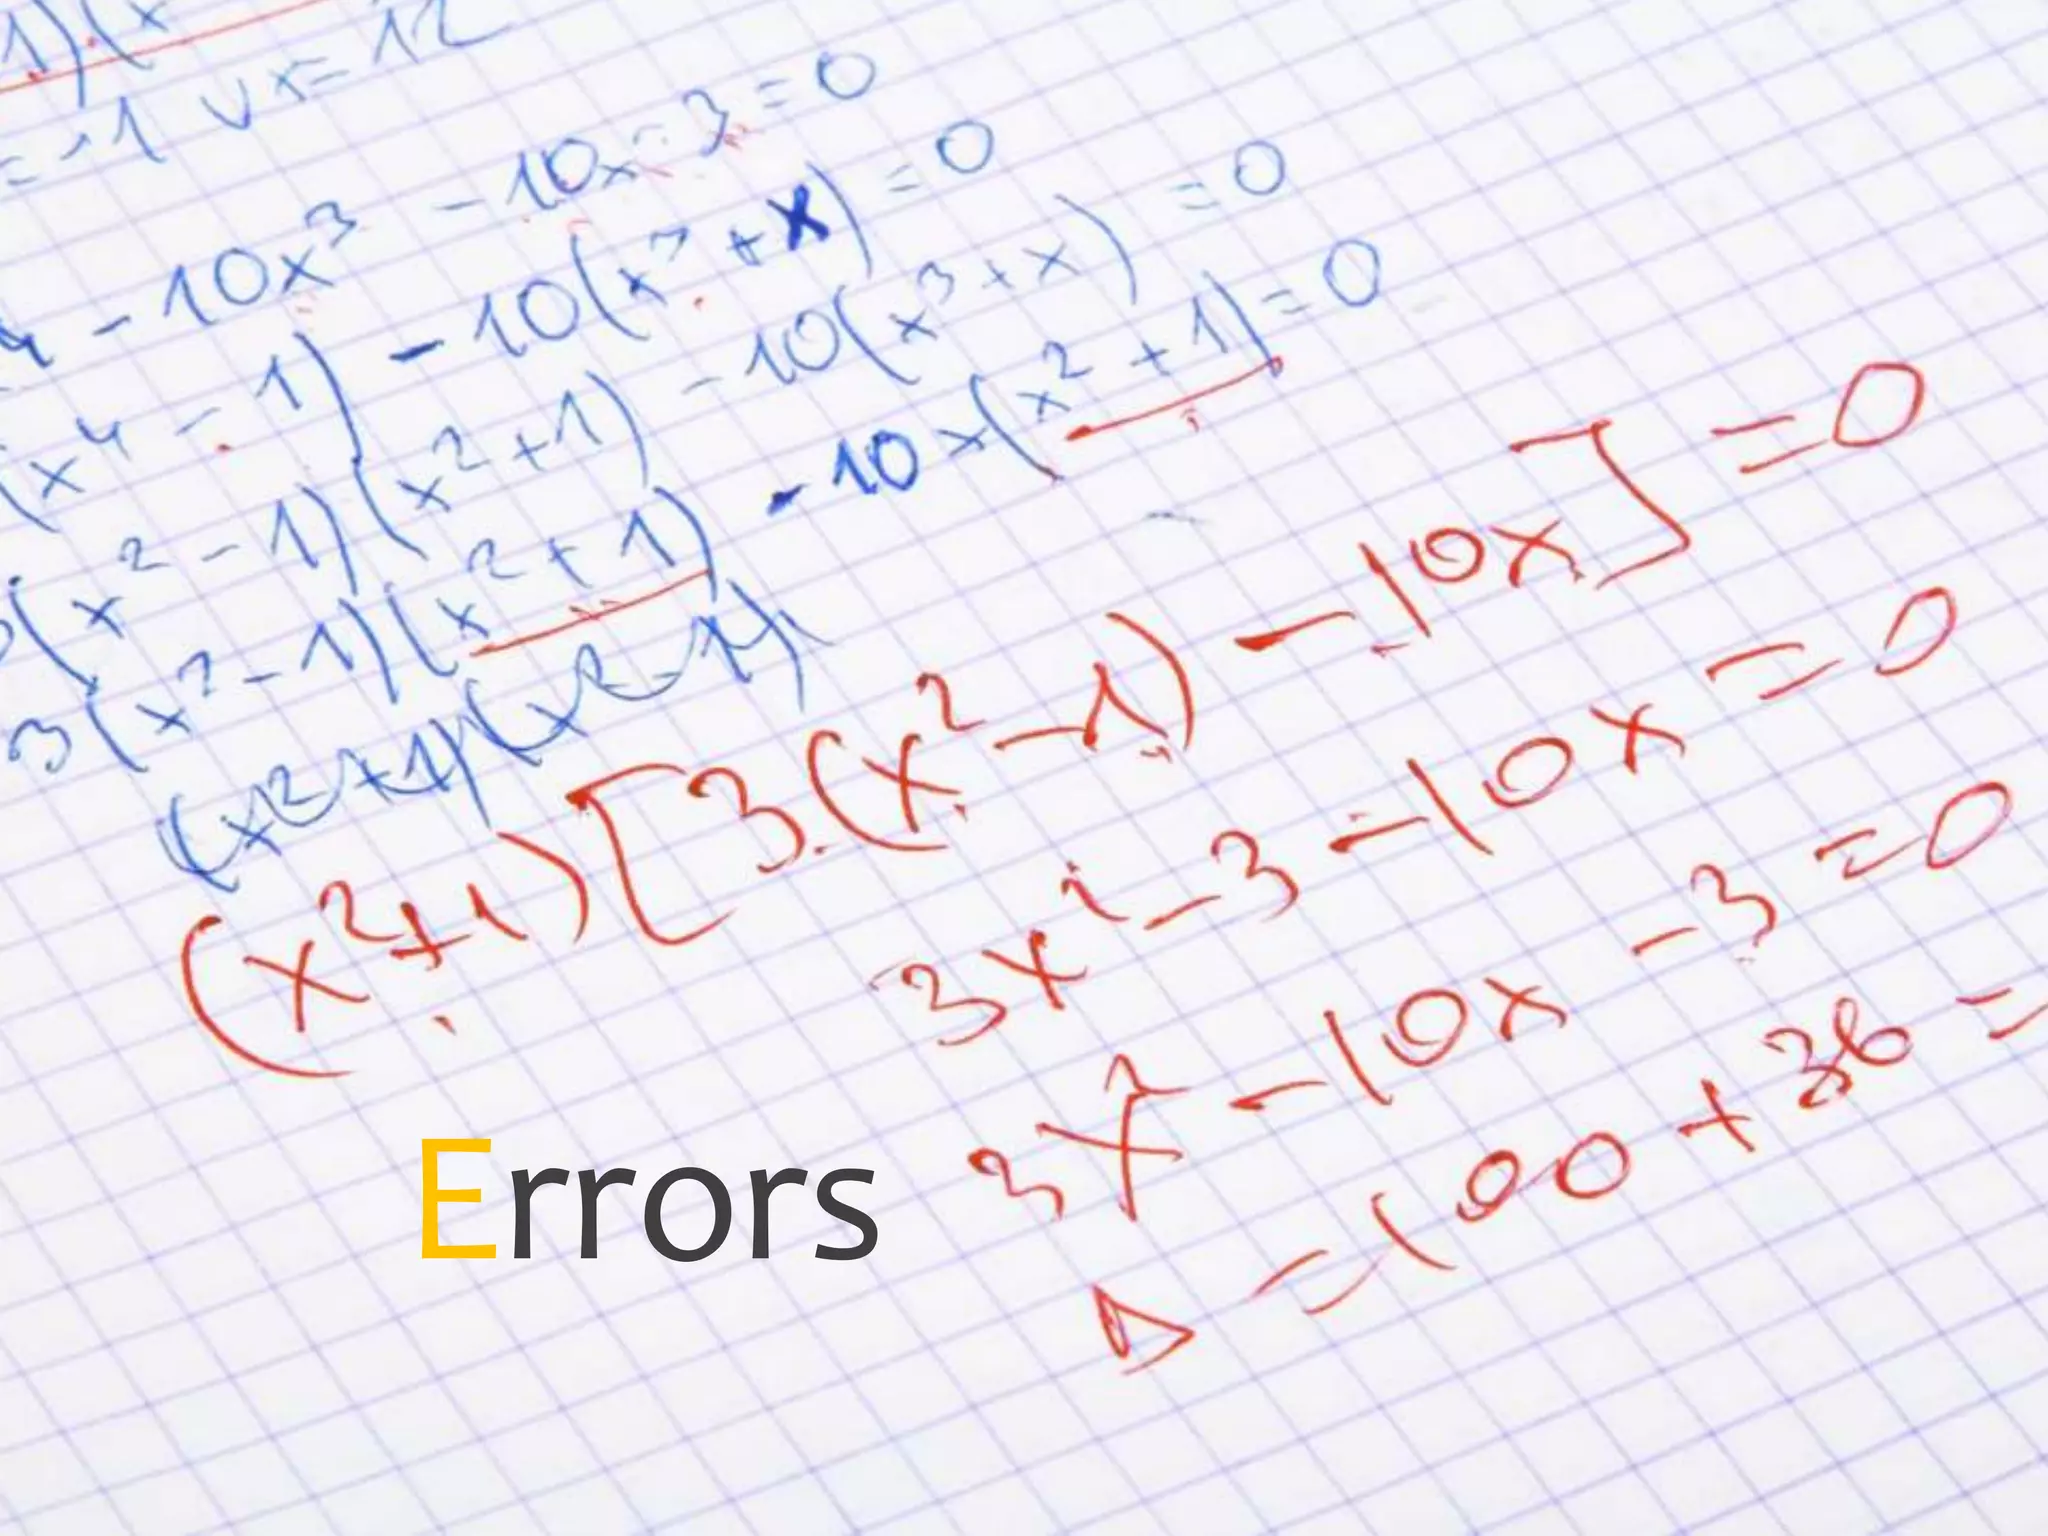 1)(x
= -1 v x = 12
4 - 10x³ - 10x - 3 = 0
(x⁴ - 1) - 10(x³ + x) = 0
(x² - 1)(x² + 1) - 10(x³ + x) = 0
3(x² - 1)(x² + 1) - 10x(x² + 1) = 0
(x² + 1)(x² - 1)
(x² + 1)[3(x² - 1) - 10x] = 0
3x² - 3 - 10x = 0
3x² - 10x - 3 = 0
Δ = 100 + 36 =
Errors